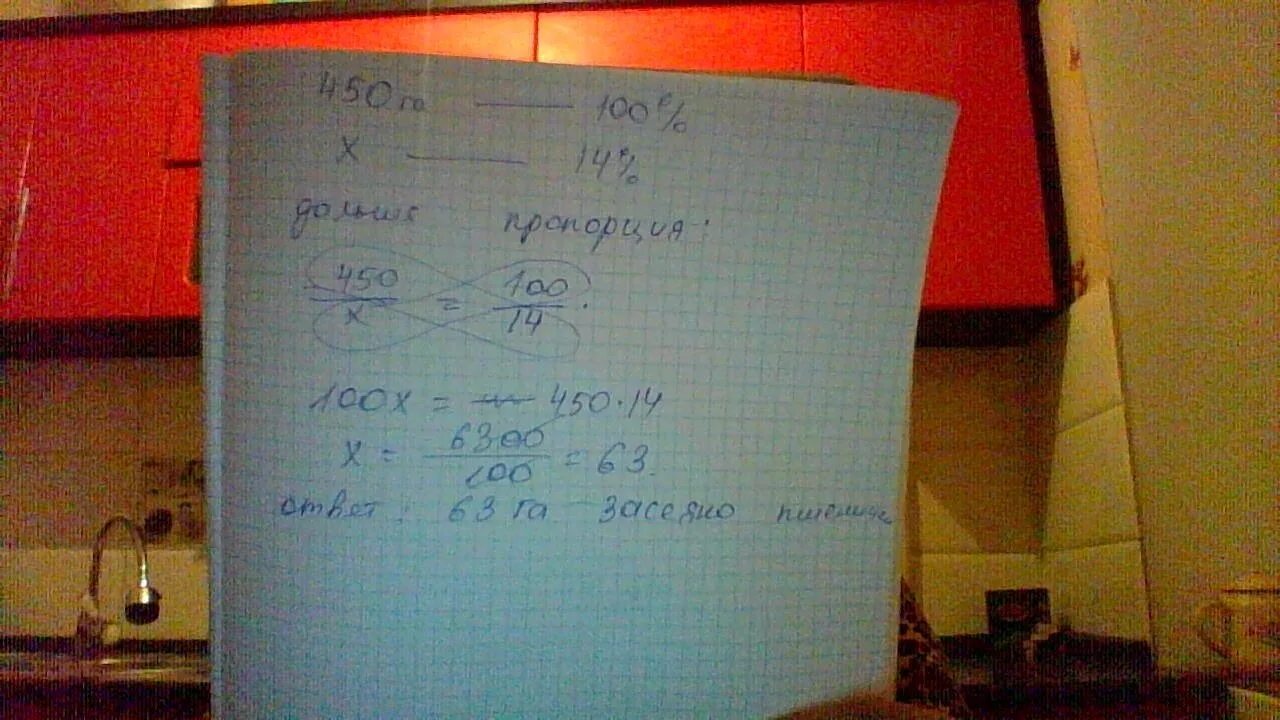 450 га —— 100%
x —— 14%
дальше пропорция:
450/x = 100/14.
100x = 450·14
x = 6300/100 = 63.
ответ: 63 га засеяно пшеницей